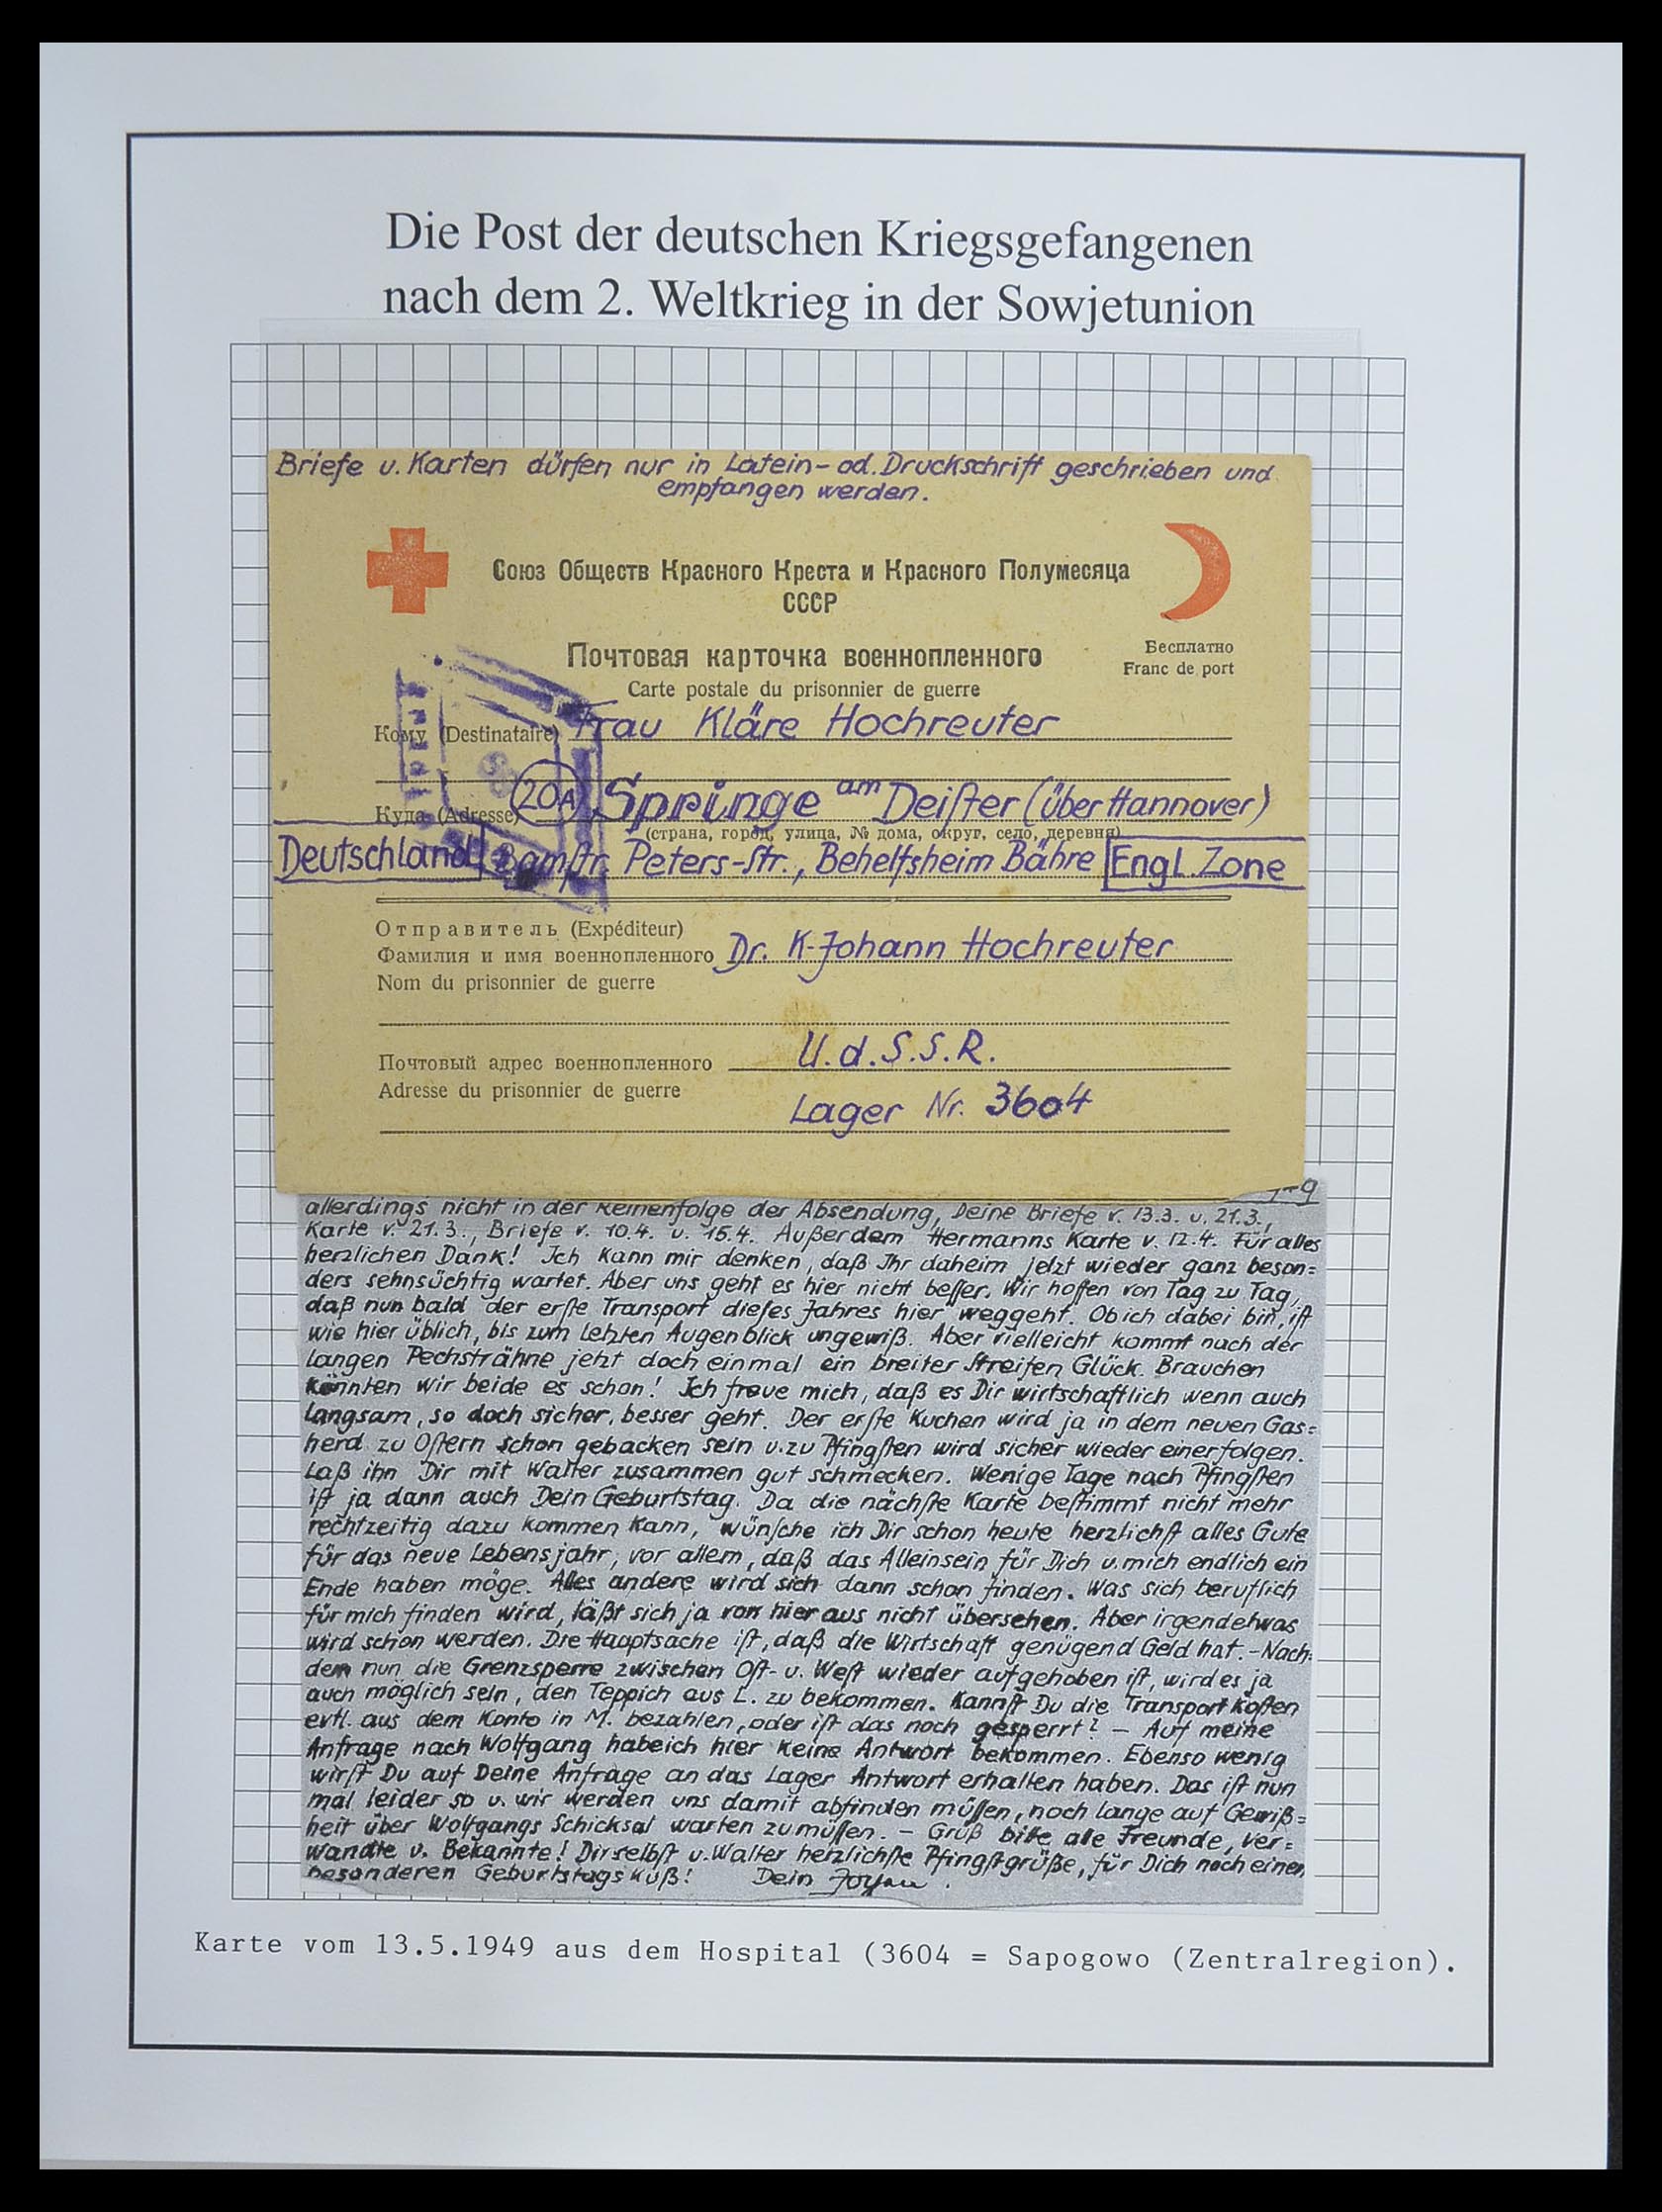 Die Post der deutschen Kriegsgefangenen
nach dem 2. Weltkrieg in der Sowjetunion
Briefe u. Karten dürfen nur in Latein- od. Druckschrift geschrieben und
empfangen werden.
Союз Обществ Красного Креста и Красного Полумесяца
СССР
Почтовая карточка военнопленного
Бесплатно
Carte postale du prisonnier de guerre
Franc de port
Кому (Destinataire) Frau Kläre Hochreuter
Куда (Adresse) 20A Springe am Deister (über Hannover)
(страна, город, улица, № дома, округ, село, деревня)
Deutschland Bamstr. Peters-Str., Behelfsheim Bähre Engl. Zone
Отправитель (Expéditeur)
Фамилия и имя военнопленного Dr. K-Johann Hochreuter
Nom du prisonnier de guerre
Почтовый адрес военнопленного U.d.S.S.R.
Adresse du prisonnier de guerre
Lager Nr. 3604
allerdings nicht in der Reihenfolge der Absendung, Deine Briefe v. 13.3. u. 21.3.,
Karte v. 21.3., Briefe v. 10.4. u. 15.4. Außerdem Hermanns Karte v. 12.4. Für alles
herzlichen Dank! Ich kann mir denken, daß Ihr daheim jetzt wieder ganz beson=
ders sehnsüchtig wartet. Aber uns geht es hier nicht besser. Wir hoffen von Tag zu Tag,
daß nun bald der erste Transport dieses Jahres hier weggeht. Ob ich dabei bin, ist
wie hier üblich, bis zum letzten Augenblick ungewiß. Aber vielleicht kommt nach der
langen Pechsträhne jetzt doch einmal ein breiter Streifen Glück. Brauchen
könnten wir beide es schon! Ich freue mich, daß es Dir wirtschaftlich wenn auch
langsam, so doch sicher, besser geht. Der erste Kuchen wird ja in dem neuen Gas=
herd zu Ostern schon gebacken sein u. zu Pfingsten wird sicher wieder einer folgen.
Laß ihn Dir mit Walter zusammen gut schmecken. Wenige Tage nach Pfingsten
ist ja dann auch Dein Geburtstag. Da die nächste Karte bestimmt nicht mehr
rechtzeitig dazu kommen kann, wünsche ich Dir schon heute herzlichst alles Gute
für das neue Lebensjahr, vor allem, daß das Alleinsein für Dich u. mich endlich ein
Ende haben möge. Alles andere wird sich dann schon finden. Was sich beruflich
für mich finden wird, läßt sich ja von hier aus nicht übersehen. Aber irgendetwas
wird schon werden. Die Hauptsache ist, daß die Wirtschaft genügend Geld hat. - Nach=
dem nun die Grenzsperre zwischen Ost- u. West wieder aufgehoben ist, wird es ja
auch möglich sein, den Teppich aus L. zu bekommen. Kannst Du die Transportkosten
evtl. aus dem Konto in M. bezahlen, oder ist das noch gesperrt? - Auf meine
Anfrage nach Wolfgang habe ich hier keine Antwort bekommen. Ebenso wenig
wirst Du auf Deine Anfrage an das Lager Antwort erhalten haben. Das ist nun
mal leider so u. wir werden uns damit abfinden müssen, noch lange auf Gewiß=
heit über Wolfgangs Schicksal warten zu müssen. - Grüß bitte alle Freunde, Ver=
wandte u. Bekannte! Dir selbst u. Walter herzlichste Pfingstgrüße, für Dich noch einen
besonderen Geburtstagskuß! Dein
Karte vom 13.5.1949 aus dem Hospital (3604 = Sapogowo (Zentralregion).